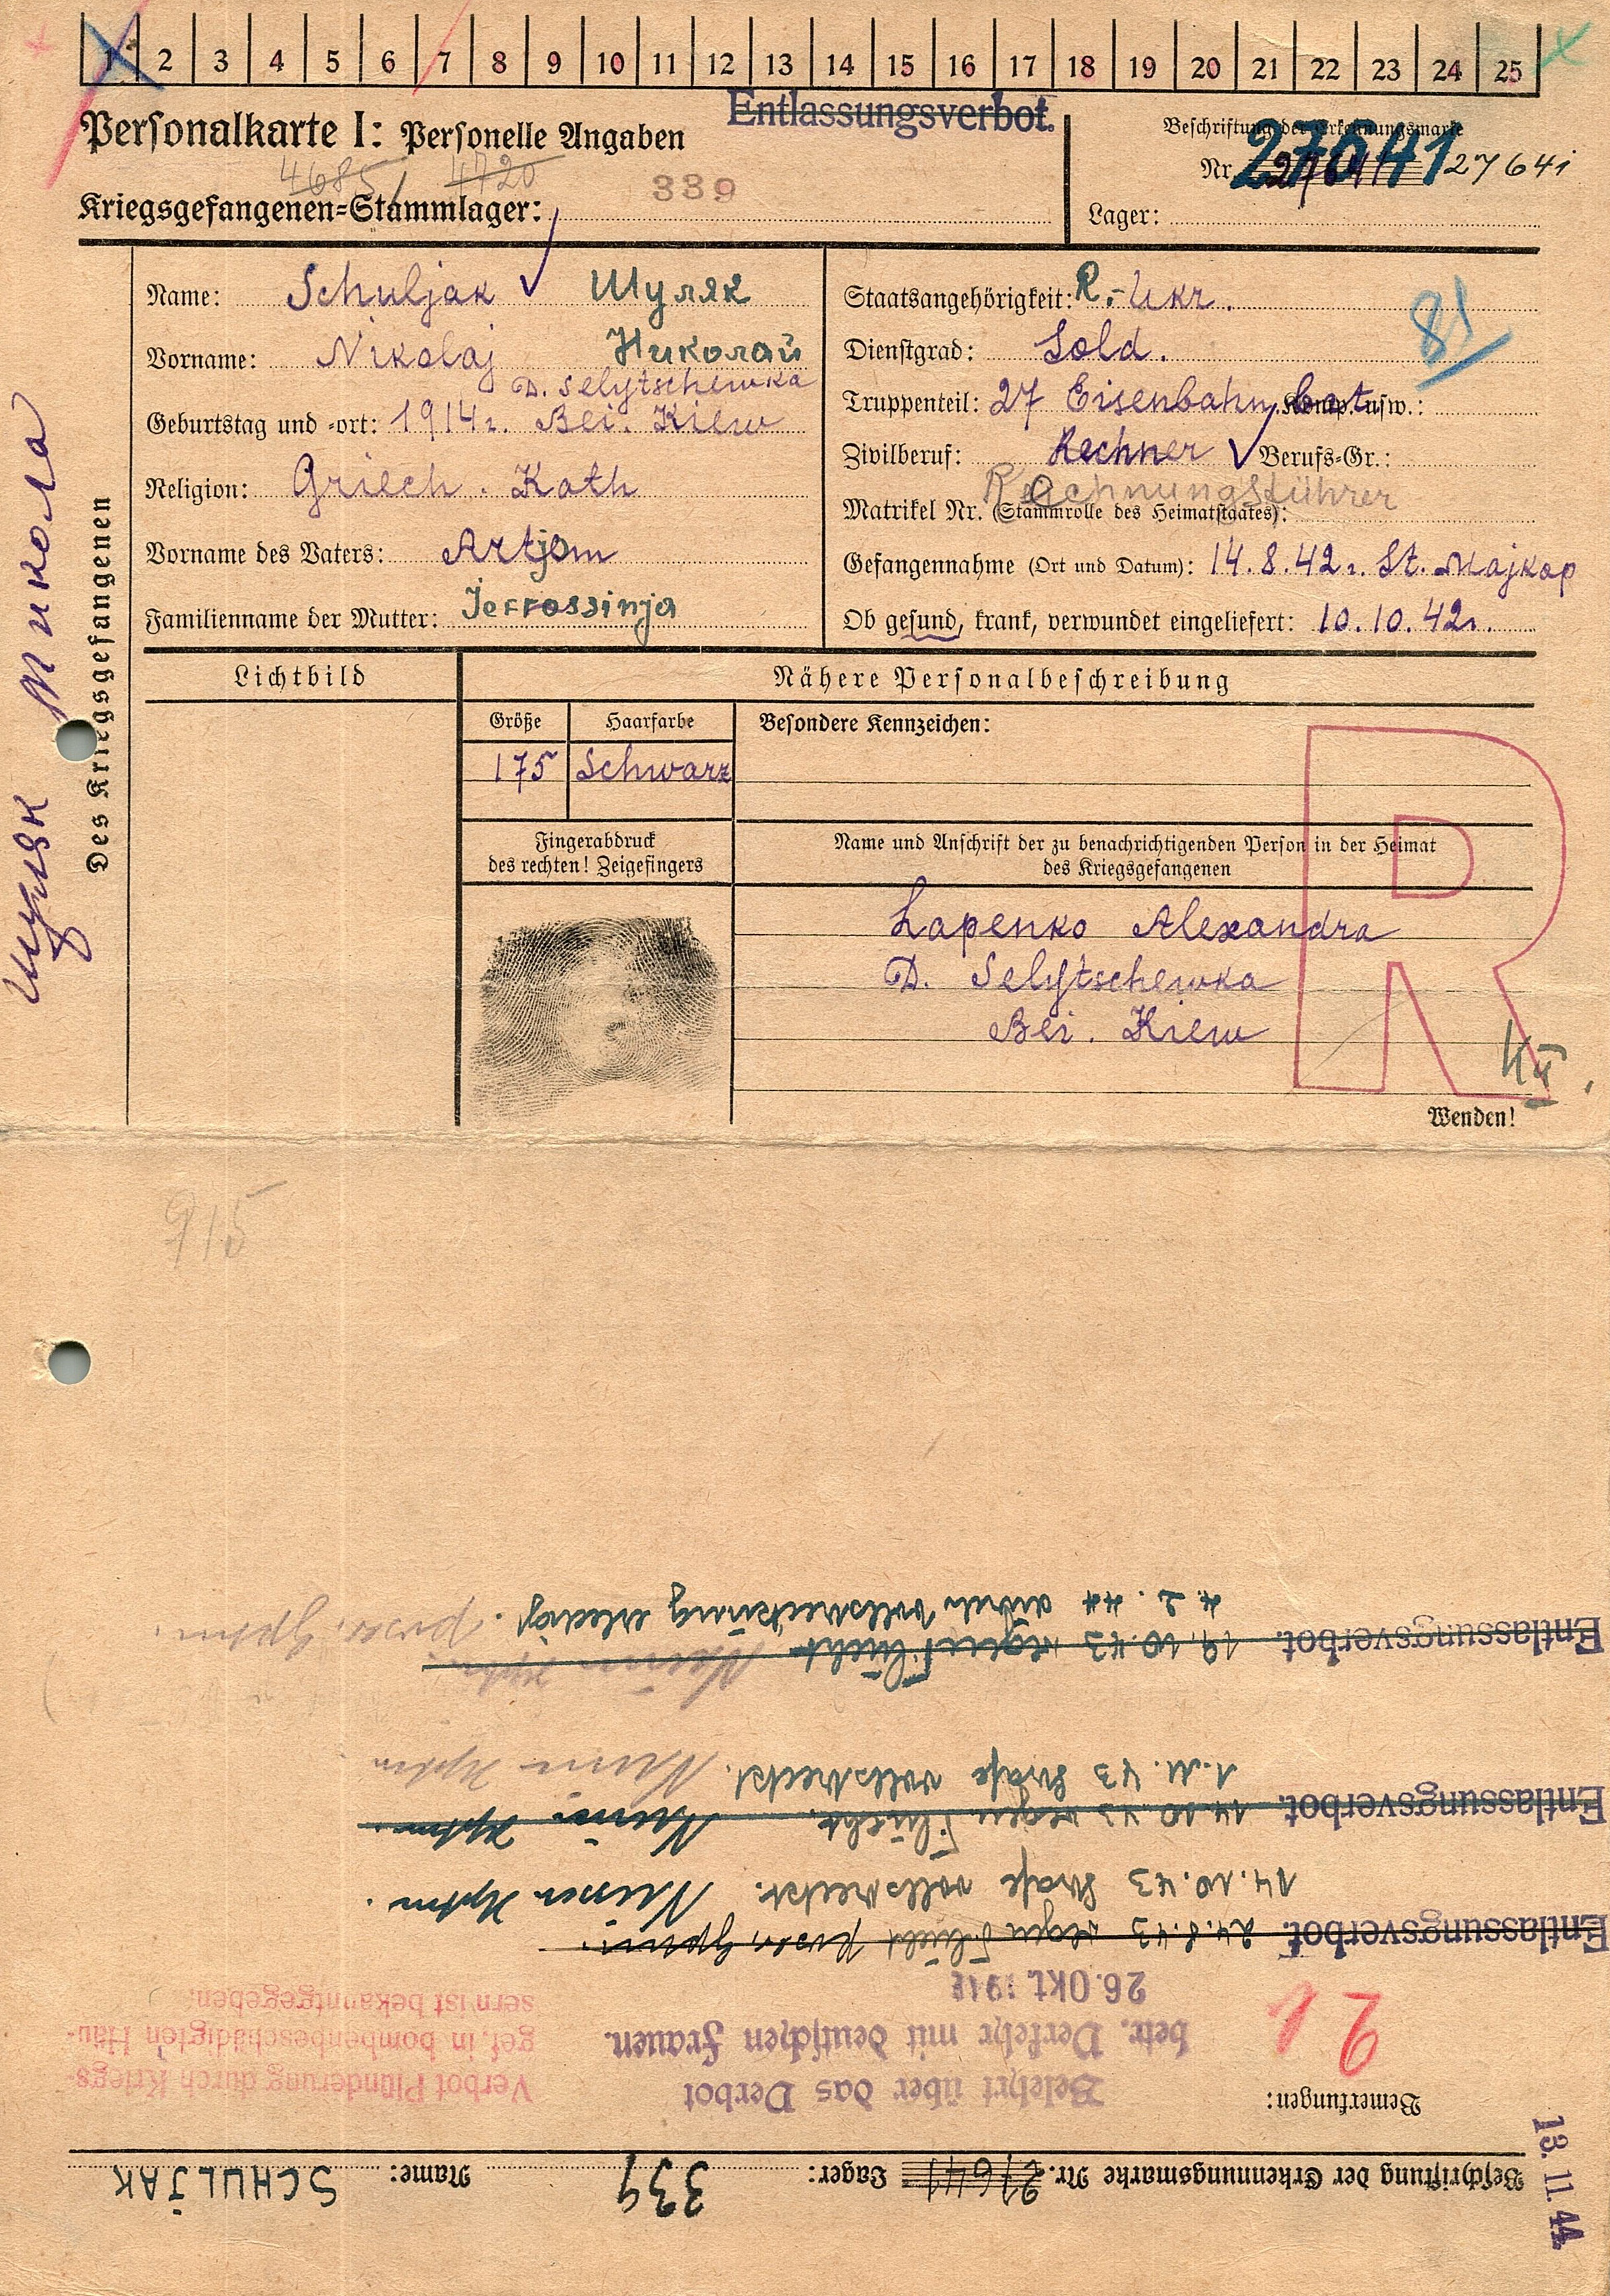 1 2 3 4 5 6 7 8 9 10 11 12 13 14 15 16 17 18 19 20 21 22 23 24 25
Entlassungsverbot.
Personalkarte I: Personelle Angaben
4685 4720
Kriegsgefangenen-Stammlager: 339
Beschriftung der Erkennungsmarke
Nr. 27641 27641
Lager:
Des Kriegsgefangenen
Шуляк Микола
Name: Schuljak Шуляк
Vorname: Nikolaj Николай
D. Selytschewka
Geburtstag und -ort: 1914r. Bei. Kiew
Religion: Griech. Kath
Vorname des Vaters: Artjom
Familienname der Mutter: Jefrossinja
Staatsangehörigkeit: R.-Ukr.
81
Dienstgrad: Sold.
Truppenteil: 27 Eisenbahn, Bat. Komp. usw.:
Zivilberuf: Rechner Berufs-Gr.:
Rechnungsführer
Matrikel Nr. (Stammrolle des Heimatstaates):
Gefangennahme (Ort und Datum): 14.8.42r. St. Majkop
Ob gesund, krank, verwundet eingeliefert: 10.10.42r.
Lichtbild
Nähere Personalbeschreibung
Größe
Haarfarbe
Besondere Kennzeichen:
175
Schwarz
Fingerabdruck
des rechten! Zeigefingers
Name und Anschrift der zu benachrichtigenden Person in der Heimat
des Kriegsgefangenen
Lapenko Alexandra
D. Selytschewka
Bei. Kiew
R
Wenden!
915
Beschriftung der Erkennungsmarke Nr. 27641 Lager: 339 Name: SCHULJAK
13. 11. 44.
Bemerkungen:
21
Belehrt über das Verbot
betr. Verkehr mit deutschen Frauen.
26. Okt. 1942
Verbot Plünderung durch Kriegs-
gef. in bombenbeschädigten Häu-
sern ist bekanntgegeben.
Entlassungsverbot. 24.8.43 wegen Flucht
14.10.43 Strafe vollstreckt.
Entlassungsverbot. 14.10.43 wegen Flucht.
1.11.43 Strafe vollstreckt.
Entlassungsverbot. 19.10.43 wegen Flucht
4.2.44 durch Vollstreckung erledigt.